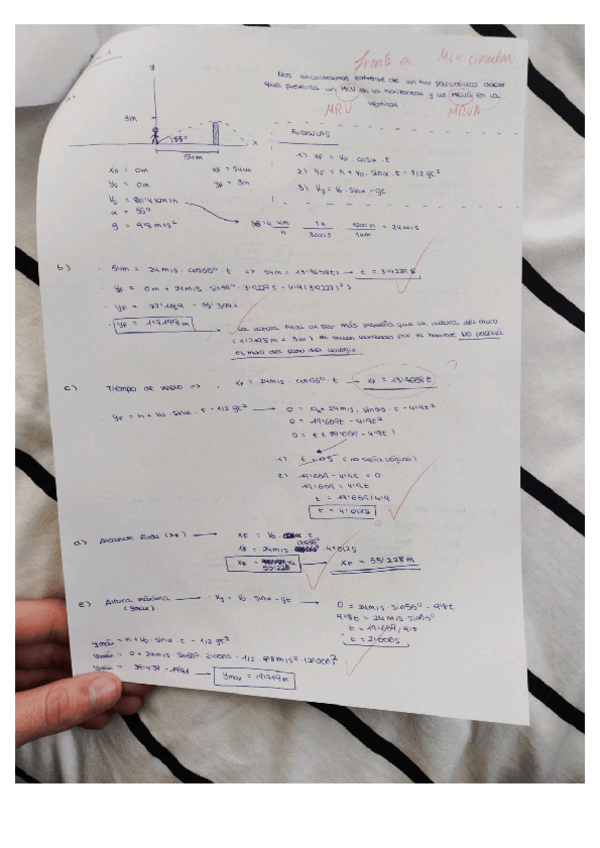 frente a MCU circular.
Nos encontramos enfrente de un tiro parabólico dado
que presenta un MCU en la horizontal y un MCUA en la
vertical.
MRU MRUA
y
3m
55°
x
54m
FÓRMULAS
x₀ = 0m xF = 54m
y₀ = 0m yF = 3m
V₀ = 86'4 km/h
α = 55°
g = 9'8 m/s²
1) xF = V₀ · cosα · t
2) yF = h + V₀ · sinα · t - 1/2 gt²
3) Vy = V₀ · sinα - gt
86'4 km/h · 1h/3600s · 1000m/1km = 24m/s
b.)
54m = 24m/s · cos55° · t => 54m = 13'765t → t = 3'922s
yF = 0m + 24m/s · sin55° · 3'922s - 4'9(3'922)² s
yF = 1'7178m
La altura final al ser más pequeña que la altura del muro
(1'7178m < 3m) el balón lanzado por el hombre NO pasará
el muro del patio del colegio.
c.) Tiempo de vuelo => xF = 24m/s · cos55° · t → xF = 13'765t ?
yF = h + V₀ · sinα · t - 1/2 gt² → 0 = 0 + 24m/s · sin55 · t - 4'9t²
0 = 19'659t - 4'9t²
0 = t (19'659 - 4'9t)
1) t = 0s (no sería lógico)
2) 19'659 - 4'9t = 0
19'659 = 4'9t
t = 19'659/4'9
t = 4'012s
d) Alcance final (xF) → xF = V₀ t
xF = 24m/s cos55° · 4'012s
xF = 55'228 → xF = 55'228m
e) Altura máxima → Vy = V₀ · sinα - gt → 0 = 24m/s · sin55° - 9'8t
(ymáx)
9'8t = 24m/s · sin55°
t = 19'659/9'8
t = 2'006s
ymáx = h + V₀ · sinα · t - 1/2 gt²
ymáx = 0 + 24m/s · sin55° · 2'006s - 1/2 · 9'8m/s² · (2'006)²
ymáx = → ymáx = 19'719m